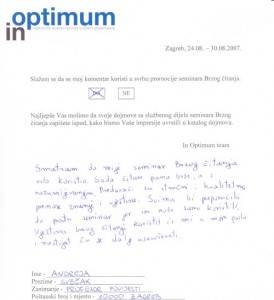 optimum
in
Zagreb, 24.08. – 30.08.2007.
Slažem se da se moj komentar koristi u svrhu promocije seminara Brzog čitanja.
DA
NE
Najljepše Vas molimo da svoje dojmove sa službenog dijela seminara Brzog
čitanja zapišete ispod, kako bismo Vaše impresije uvrstili u katalog dojmova.
In Optimum team
Smatram da mi je seminar Brzog čitanja
vrlo koristio. Sada čitam puno brže, a i
s razumijevanjem. Predavači su stručni i kvalitetno
prenose znanje i vještine. Svima bi preporučila
da pođu seminar jer im može samo koristiti.
Vještina brzog čitanja koristit će mi u
i nastojat ću se dalje usavršavati.
Ime - ANDREJA
Prezime - 
Zanimanje - PROFESOR POVIJESTI
Poštanski broj i mjesto - 10000 ZAGREB